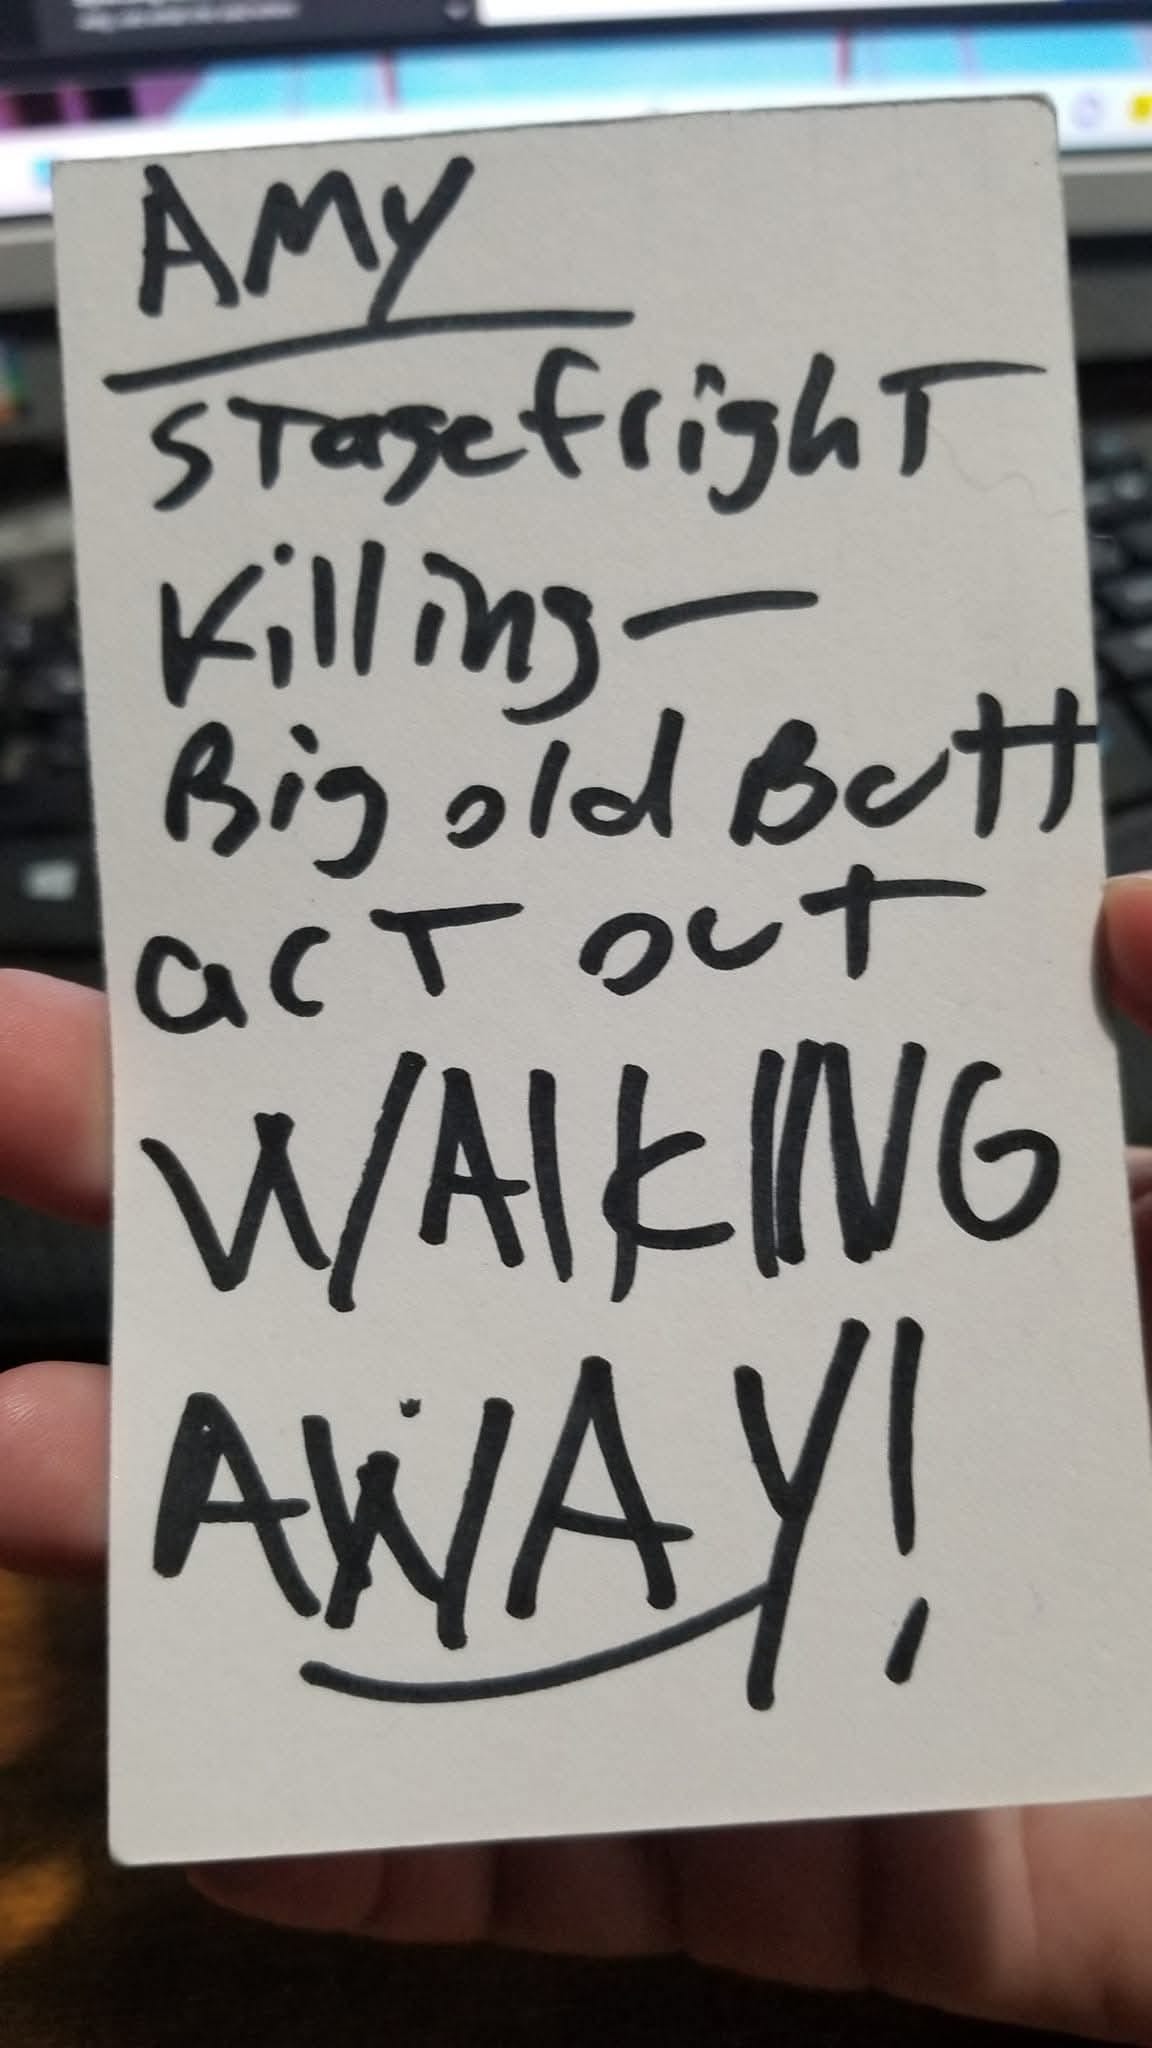 AMY
stagefright
Killing—
Big old Butt
act out
WALKING
AWAY!